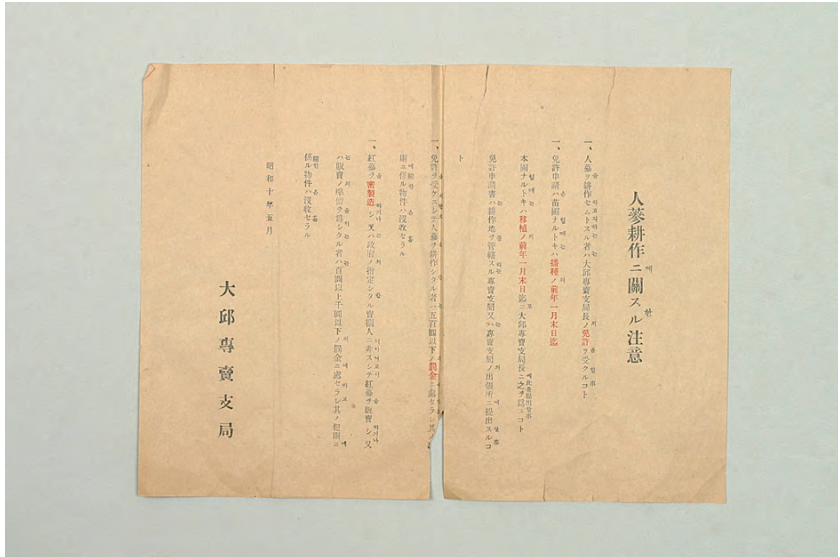 人蔘耕作ニ關スル注意
一、人蔘ヲ耕作セムトスル者ハ大邱專賣支局長ノ免許ヲ受クルコト
一、免許申請ハ苗圃ナルトキハ播種ノ前年一月末日迄
本圃ナルトキハ移植ノ前年一月末日迄ニ大邱專賣支局長ニ之ヲ爲スコト
免許申請書ハ耕作地ヲ管轄スル專賣支局又ハ專賣支局ノ出張所ニ提出スルコ
ト
一、免許ヲ受ケスシテ人蔘ヲ耕作シタル者ハ五百圓以下ノ罰金ニ處セラレ其ノ
則ニ係ル物件ハ沒收セラル
一、紅蔘ヲ密製造シ又ハ政府ノ指定シタル賣捌人ニ非スシテ紅蔘ヲ販賣シ又
ハ販賣ノ準備ヲ爲シタル者ハ百圓以上千圓以下ノ罰金ニ處セラレ其ノ犯則ニ
係ル物件ハ沒收セラル
昭和十年五月
大邱專賣支局